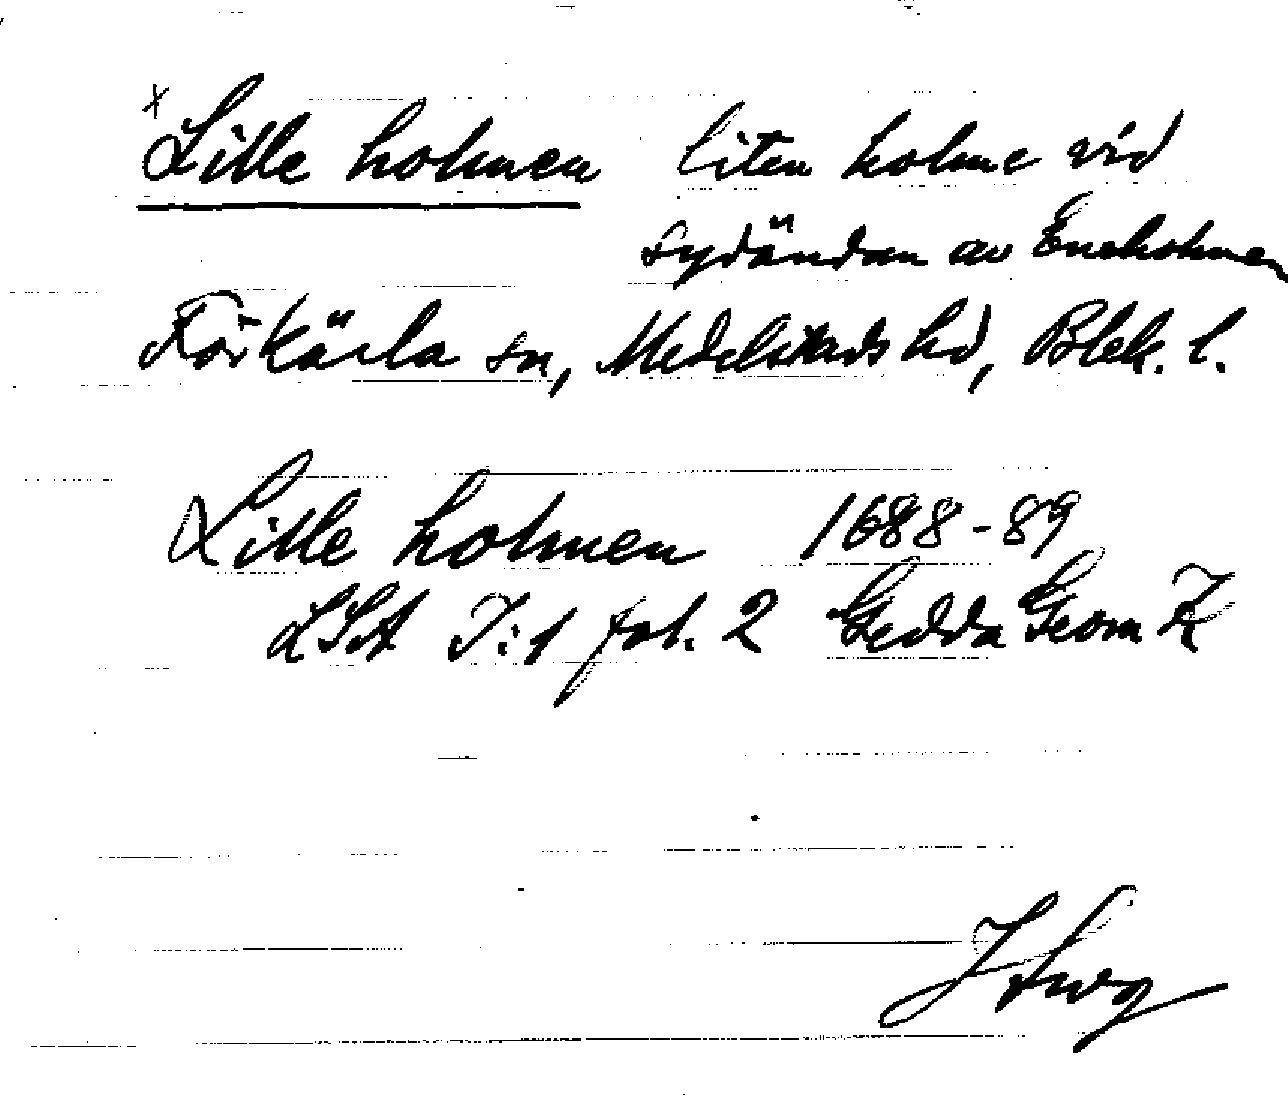 * Lille holmen liten holme vid
sydändan av Eneholmen
Förkärla sn, Medelstads hd, Blek. l.
Lille holmen 1688-89
LSA I:1 fol. 2 Gedda Geom K